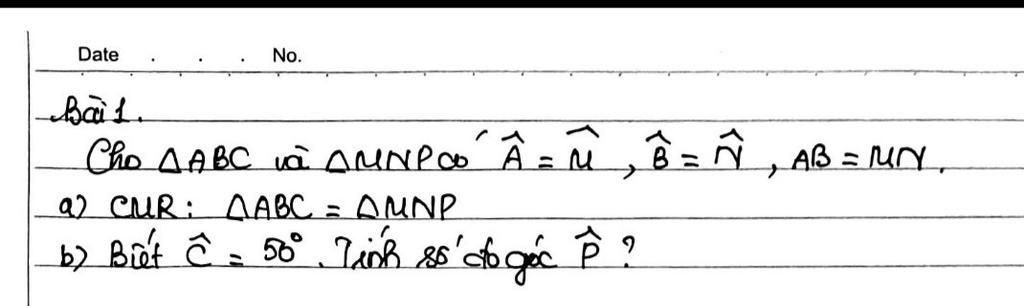 Date . . . No.
Bài 1.
Cho ΔABC và ΔMNP có Â = M̂, B̂ = N̂, AB = MN.
a) CMR: ΔABC = ΔMNP
b) Biết Ĉ = 50°. Tính số đo góc P̂ ?